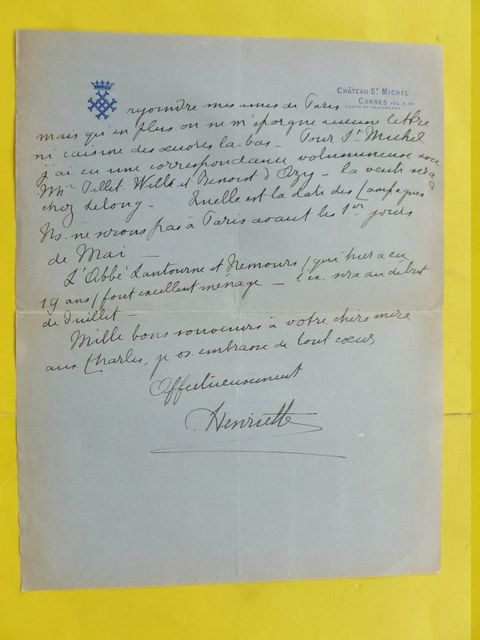 CHÂTEAU St MICHEL
CANNES TEL.
rejoindre mes amies de Paris
mais qu'en plus on ne m'épargne aucune lettre
ni caisine des œuvres la-bas - Pour St Michel
j'ai eu une correspondance volumineuse avec
Mme Pillet-Will et Benoist d'Azy - la vente sera
chez Lelong - Quelle est la date des Campagnes
Ns. ne serons pas à Paris avant les 1ers jours
de Mai -
L'Abbé Lantourne et Nemours / qui hier a eu
19 ans / font excellent ménage - l'ex. sera au début
de Juillet -
Mille bons souvenirs à votre chère mère
aux Charles, je os. embrasse de tout cœur
Affectueusement
Henriette